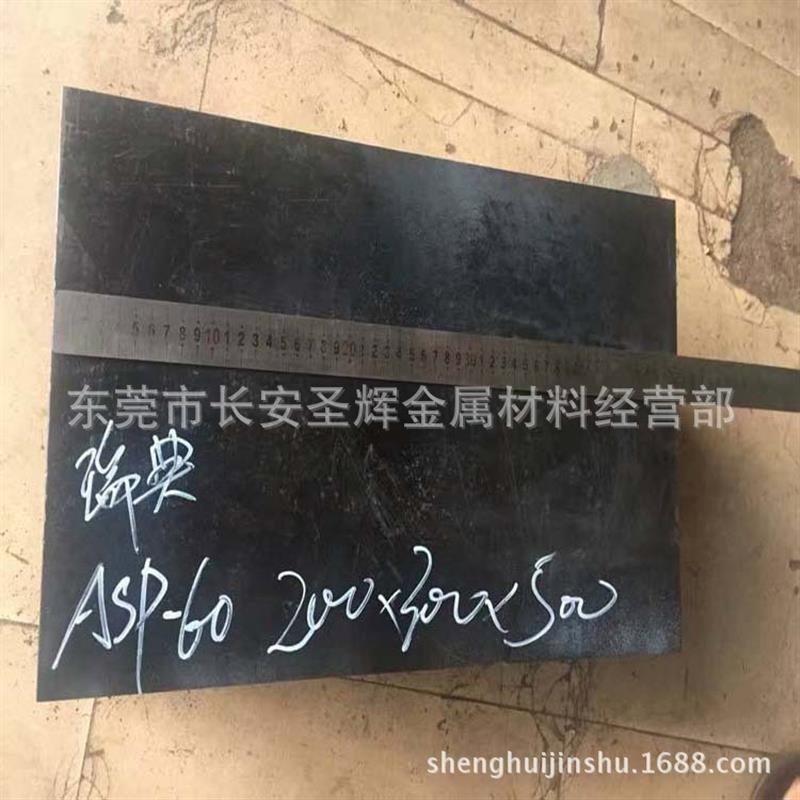 5 6 7 8 9 10 1 2 3 4 5 6 7 8 9 20 1 2 3 4 5 6 7 8 9 30 1 2 3 4 5 6 7 8
东莞市长安圣辉金属材料经营部
瑞典
ASP-60 200×300×500
shenghuijinshu.1688.com